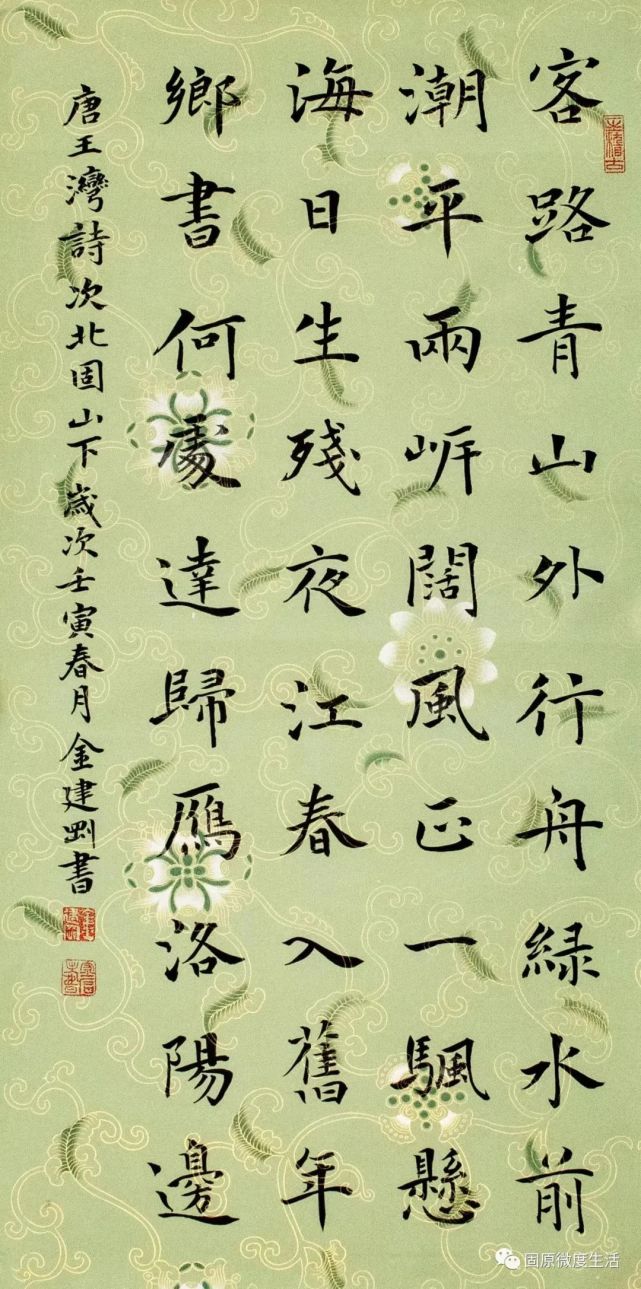 客路青山外行舟綠水前
潮平兩岍闊風正一颿懸
海日生殘夜江春入舊年
鄉書何處達歸鴈洛陽邊
唐王灣詩次北固山下歲次壬寅春月金建剛書
固原微度生活